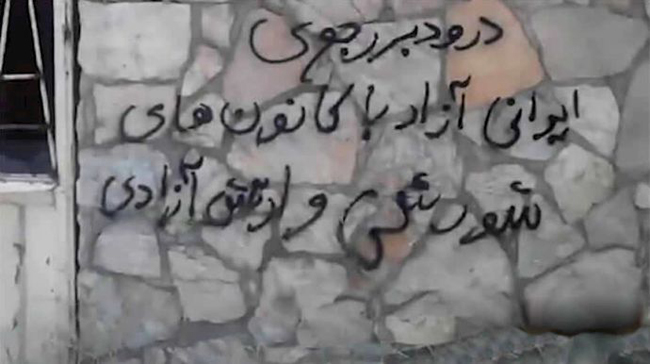 درود بر رجوی
ایرانی آزاد با کانون های
شورشی و ارتش آزادی